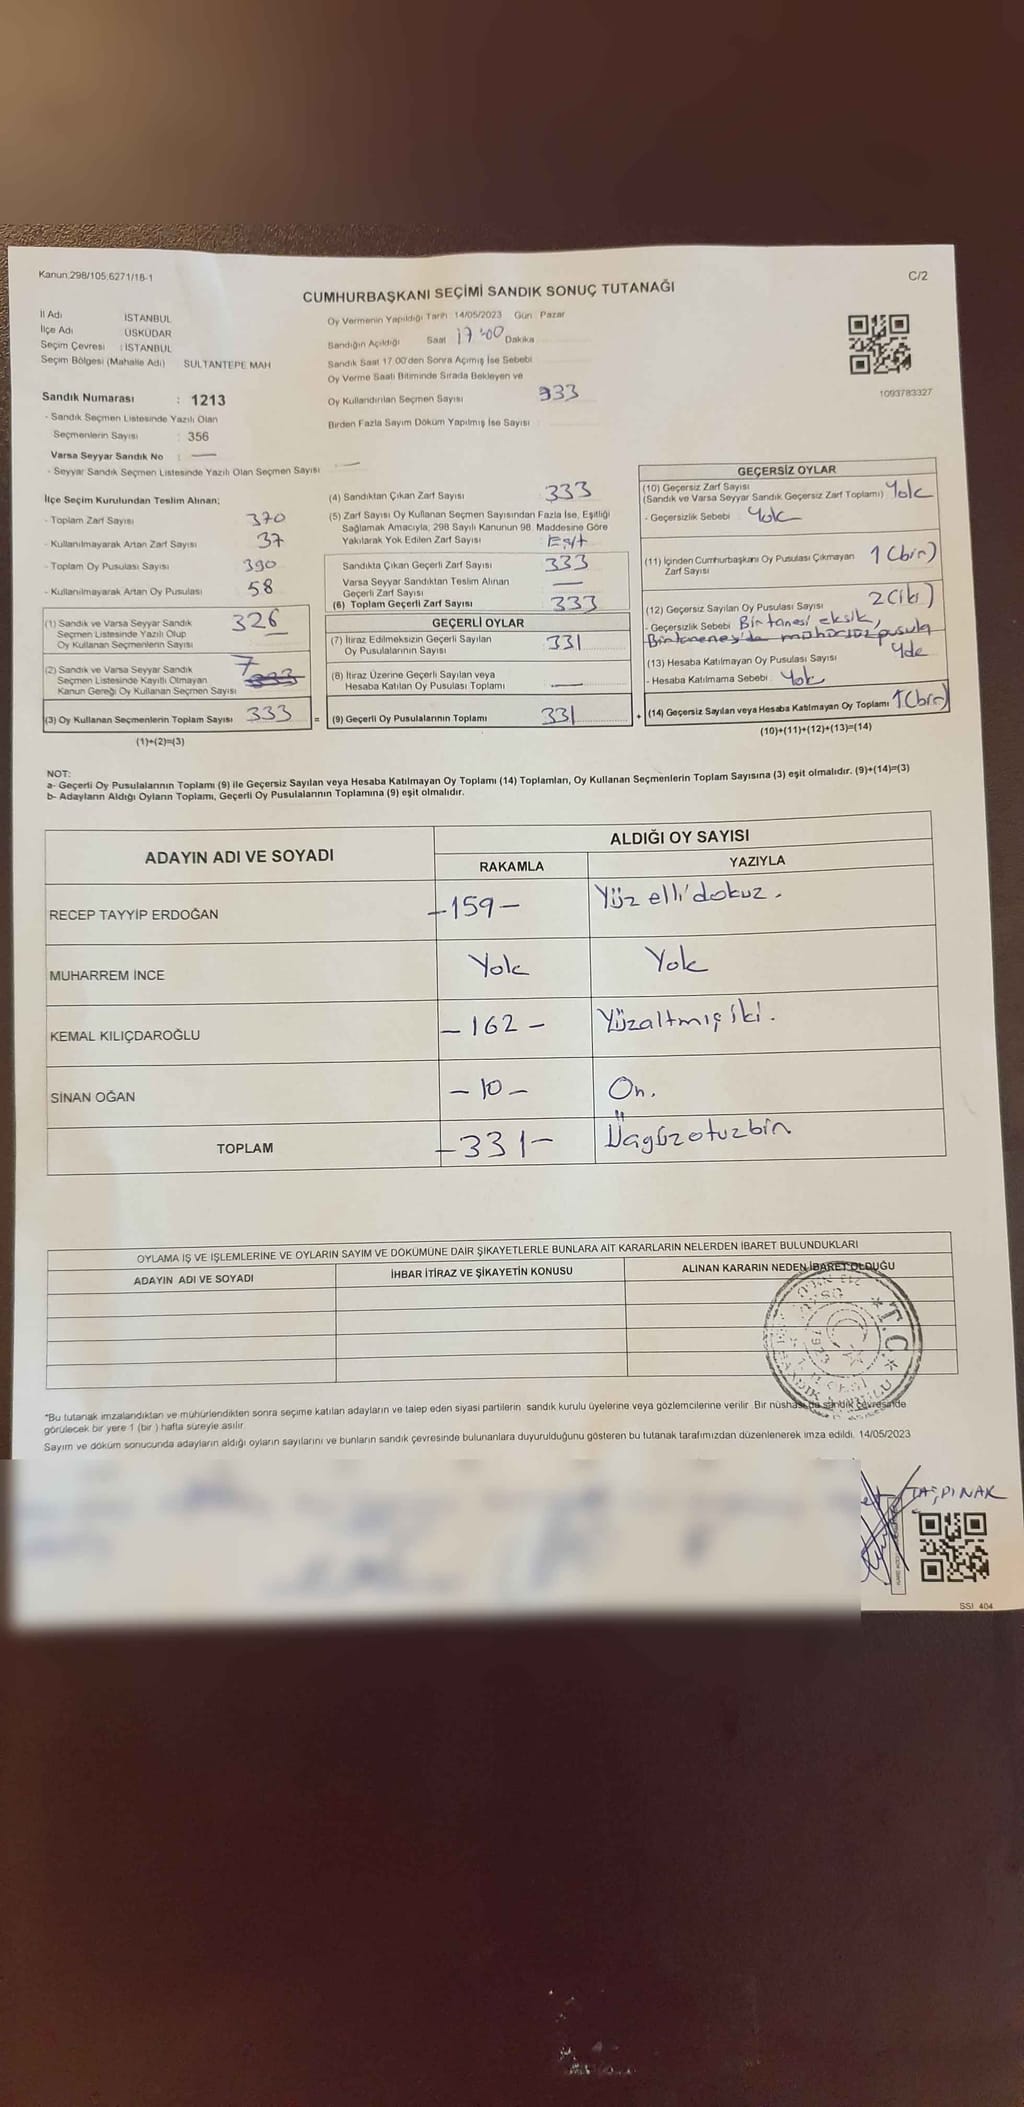 Kanun.298/105,6271/18-1
C/2
CUMHURBAŞKANI SEÇİMİ SANDIK SONUÇ TUTANAĞI
İl Adı İSTANBUL
İlçe Adı ÜSKÜDAR
Seçim Çevresi : İSTANBUL
Seçim Bölgesi (Mahalle Adı) SULTANTEPE MAH
Oy Vermenin Yapıldığı Tarih 14/05/2023 Gün Pazar
Sandığın Açıldığı Saat 17:00 Dakika
Sandık Saat 17.00'den Sonra Açımış İse Sebebi
Oy Verme Saati Bitiminde Sırada Bekleyen ve
Oy Kullandırılan Seçmen Sayısı 333
Birden Fazla Sayım Döküm Yapılmış İse Sayısı
1093783327
Sandık Numarası : 1213
- Sandık Seçmen Listesinde Yazılı Olan
Seçmenlerin Sayısı : 356
Varsa Seyyar Sandık No : —
- Seyyar Sandık Seçmen Listesinde Yazılı Olan Seçmen Sayısı : —
İlçe Seçim Kurulundan Teslim Alınan;
- Toplam Zarf Sayısı 370
- Kullanılmayarak Artan Zarf Sayısı 37
- Toplam Oy Pusulası Sayısı 390
- Kullanılmayarak Artan Oy Pusulası 58
(1) Sandık ve Varsa Seyyar Sandık
Seçmen Listesinde Yazılı Olup
Oy Kullanan Seçmenlerin Sayısı 326
(2) Sandık ve Varsa Seyyar Sandık
Seçmen Listesinde Kayıtlı Olmayan
Kanun Gereği Oy Kullanan Seçmen Sayısı 7 333
(3) Oy Kullanan Seçmenlerin Toplam Sayısı 333 =
(1)+(2)=(3)
(4) Sandıktan Çıkan Zarf Sayısı 333
(5) Zarf Sayısı Oy Kullanan Seçmen Sayısından Fazla İse, Eşitliği
Sağlamak Amacıyla; 298 Sayılı Kanunun 98. Maddesine Göre
Yakılarak Yok Edilen Zarf Sayısı Eşit
Sandıkta Çıkan Geçerli Zarf Sayısı 333
Varsa Seyyar Sandıktan Teslim Alınan
Geçerli Zarf Sayısı —
(6) Toplam Geçerli Zarf Sayısı 333
GEÇERLİ OYLAR
(7) İtiraz Edilmeksizin Geçerli Sayılan
Oy Pusulalarının Sayısı 331
(8) İtiraz Üzerine Geçerli Sayılan veya
Hesaba Katılan Oy Pusulası Toplamı —
(9) Geçerli Oy Pusulalarının Toplamı 331 +
GEÇERSİZ OYLAR
(10) Geçersiz Zarf Sayısı
(Sandık ve Varsa Seyyar Sandık Geçersiz Zarf Toplamı) Yok
- Geçersizlik Sebebi Yok
(11) İçinden Cumhurbaşkanı Oy Pusulası Çıkmayan
Zarf Sayısı 1 (bir)
(12) Geçersiz Sayılan Oy Pusulası Sayısı 2 (iki)
- Geçersizlik Sebebi Bir tanesi eksik,
pusula
(13) Hesaba Katılmayan Oy Pusulası Sayısı
- Hesaba Katılmama Sebebi Yok
(14) Geçersiz Sayılan veya Hesaba Katılmayan Oy Toplamı 1 (bir)
(10)+(11)+(12)+(13)=(14)
NOT:
a- Geçerli Oy Pusulalarının Toplamı (9) ile Geçersiz Sayılan veya Hesaba Katılmayan Oy Toplamı (14) Toplamları, Oy Kullanan Seçmenlerin Toplam Sayısına (3) eşit olmalıdır. (9)+(14)=(3)
b- Adayların Aldığı Oyların Toplamı, Geçerli Oy Pusulalarının Toplamına (9) eşit olmalıdır.
ADAYIN ADI VE SOYADI
ALDIĞI OY SAYISI
RAKAMLA YAZIYLA
RECEP TAYYİP ERDOĞAN -159- Yüz elli dokuz.
MUHARREM İNCE Yok Yok
KEMAL KILIÇDAROĞLU -162- Yüzaltmış iki.
SİNAN OĞAN -10- On.
TOPLAM -331- Üçyüzotuzbir
OYLAMA İŞ VE İŞLEMLERİNE VE OYLARIN SAYIM VE DÖKÜMÜNE DAİR ŞİKAYETLERLE BUNLARA AİT KARARLARIN NELERDEN İBARET BULUNDUKLARI
ADAYIN ADI VE SOYADI İHBAR İTİRAZ VE ŞİKAYETİN KONUSU ALINAN KARARIN NEDEN İBARET OLDUĞU
T.C.
*Bu tutanak imzalandıktan ve mühürlendikten sonra seçime katılan adayların ve talep eden siyasi partilerin sandık kurulu üyelerine veya gözlemcilerine verilir. Bir nüshası da sandık çevresinde
görülecek bir yere 1 (bir) hafta süreyle asılır.
Sayım ve döküm sonucunda adayların aldığı oyların sayılarını ve bunların sandık çevresinde bulunanlara duyurulduğunu gösteren bu tutanak tarafımızdan düzenlenerek imza edildi. 14/05/2023
TAŞPINAK
SSI_404